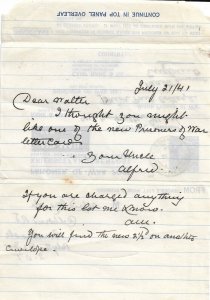 CONTINUE IN TOP PANEL OVERLEAF
July 21/41
Dear Walter
I thought you might
like one of the new Prisoners of War
letter cards
Your Uncle
Alfred.
If you are charged anything
for this let me know.
You will find the new 2/- on another
envelope.